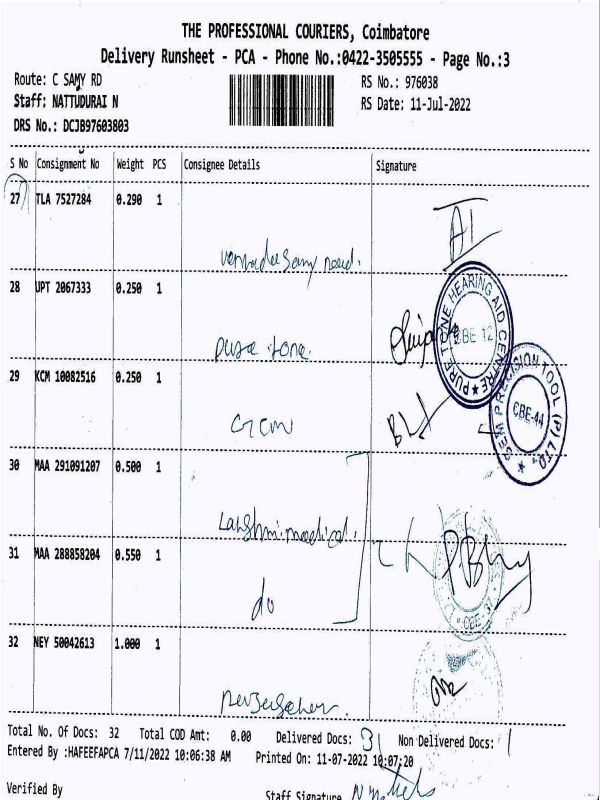 THE PROFESSIONAL COURIERS, Coimbatore
Delivery Runsheet - PCA - Phone No.:0422-3505555 - Page No.:3
Route: C SAMY RD
RS No.: 976038
Staff: NATTUDURAI N
RS Date: 11-Jul-2022
DRS No.: DCJB97603803
S No Consignment No Weight PCS Consignee Details Signature
27 TLA 7527284 0.290 1
28 UPT 2067333 0.250 1
PURE TONE HEARING AID CENTRE
CBE 12
pure tone.
29 KCM 10082516 0.250 1
GEM PRECISION TOOL (P) LTD.
CBE-44
Gem
30 MAA 291091207 0.500 1
Lakshmi medical.
31 MAA 288858204 0.550 1
do
CBE - 37
32 NEY 50042613 1.000 1
Total No. Of Docs: 32 Total COD Amt: 0.00 Delivered Docs: 31 Non Delivered Docs: 1
Entered By :HAFEEFAPCA 7/11/2022 10:06:38 AM Printed On: 11-07-2022 10:07:20
Verified By
Staff Signature